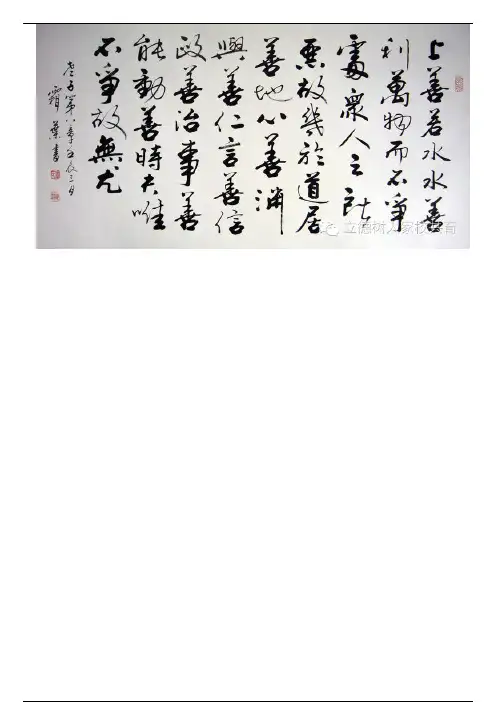 上善若水水善
利萬物而不爭
處眾人之所
惡故幾於道居
善地心善淵
與善仁言善信
政善治事善
能動善時夫唯
不爭故無尤
老子第八章
霜葉書
立德树人家校共育